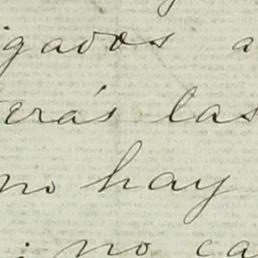 igados a
erás las
no hay
no ca